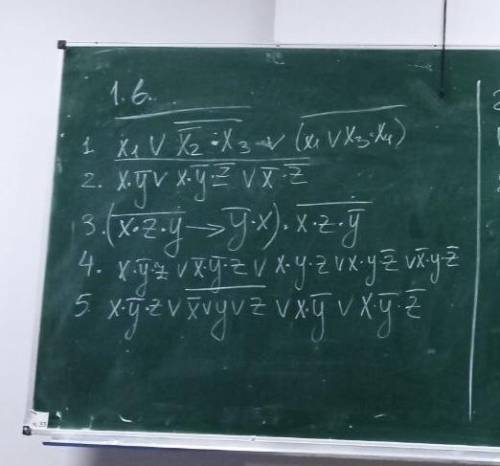 1.6.
1. \overline{x₁ ∨ \overline{x₂}·x₃} ∨ (\overline{x₁ ∨ x₃·x₄})
2. \overline{x·\overline{y} ∨ x·\overline{y}·\overline{z} ∨ \overline{x}·\overline{z}}
3. (\overline{x·z·\overline{y}} → \overline{y}·x)·\overline{x·z·\overline{y}}
4. x·\overline{y}·z ∨ \overline{x}·\overline{y}·z ∨ x·y·z ∨ x·y·\overline{z} ∨ \overline{x}·y·\overline{z}
5. x·\overline{y}·z ∨ \overline{\overline{x} ∨ y ∨ z} ∨ x·\overline{y} ∨ x·\overline{y}·\overline{z}